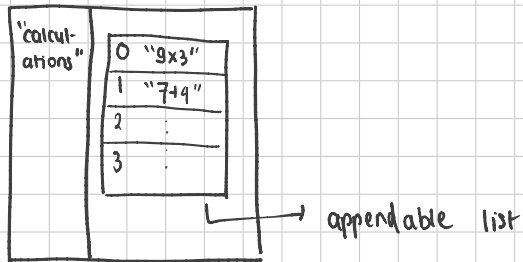 "calcul-
ations"
0 "9x3"
1 "7+9"
2 :
3 .
appendable list